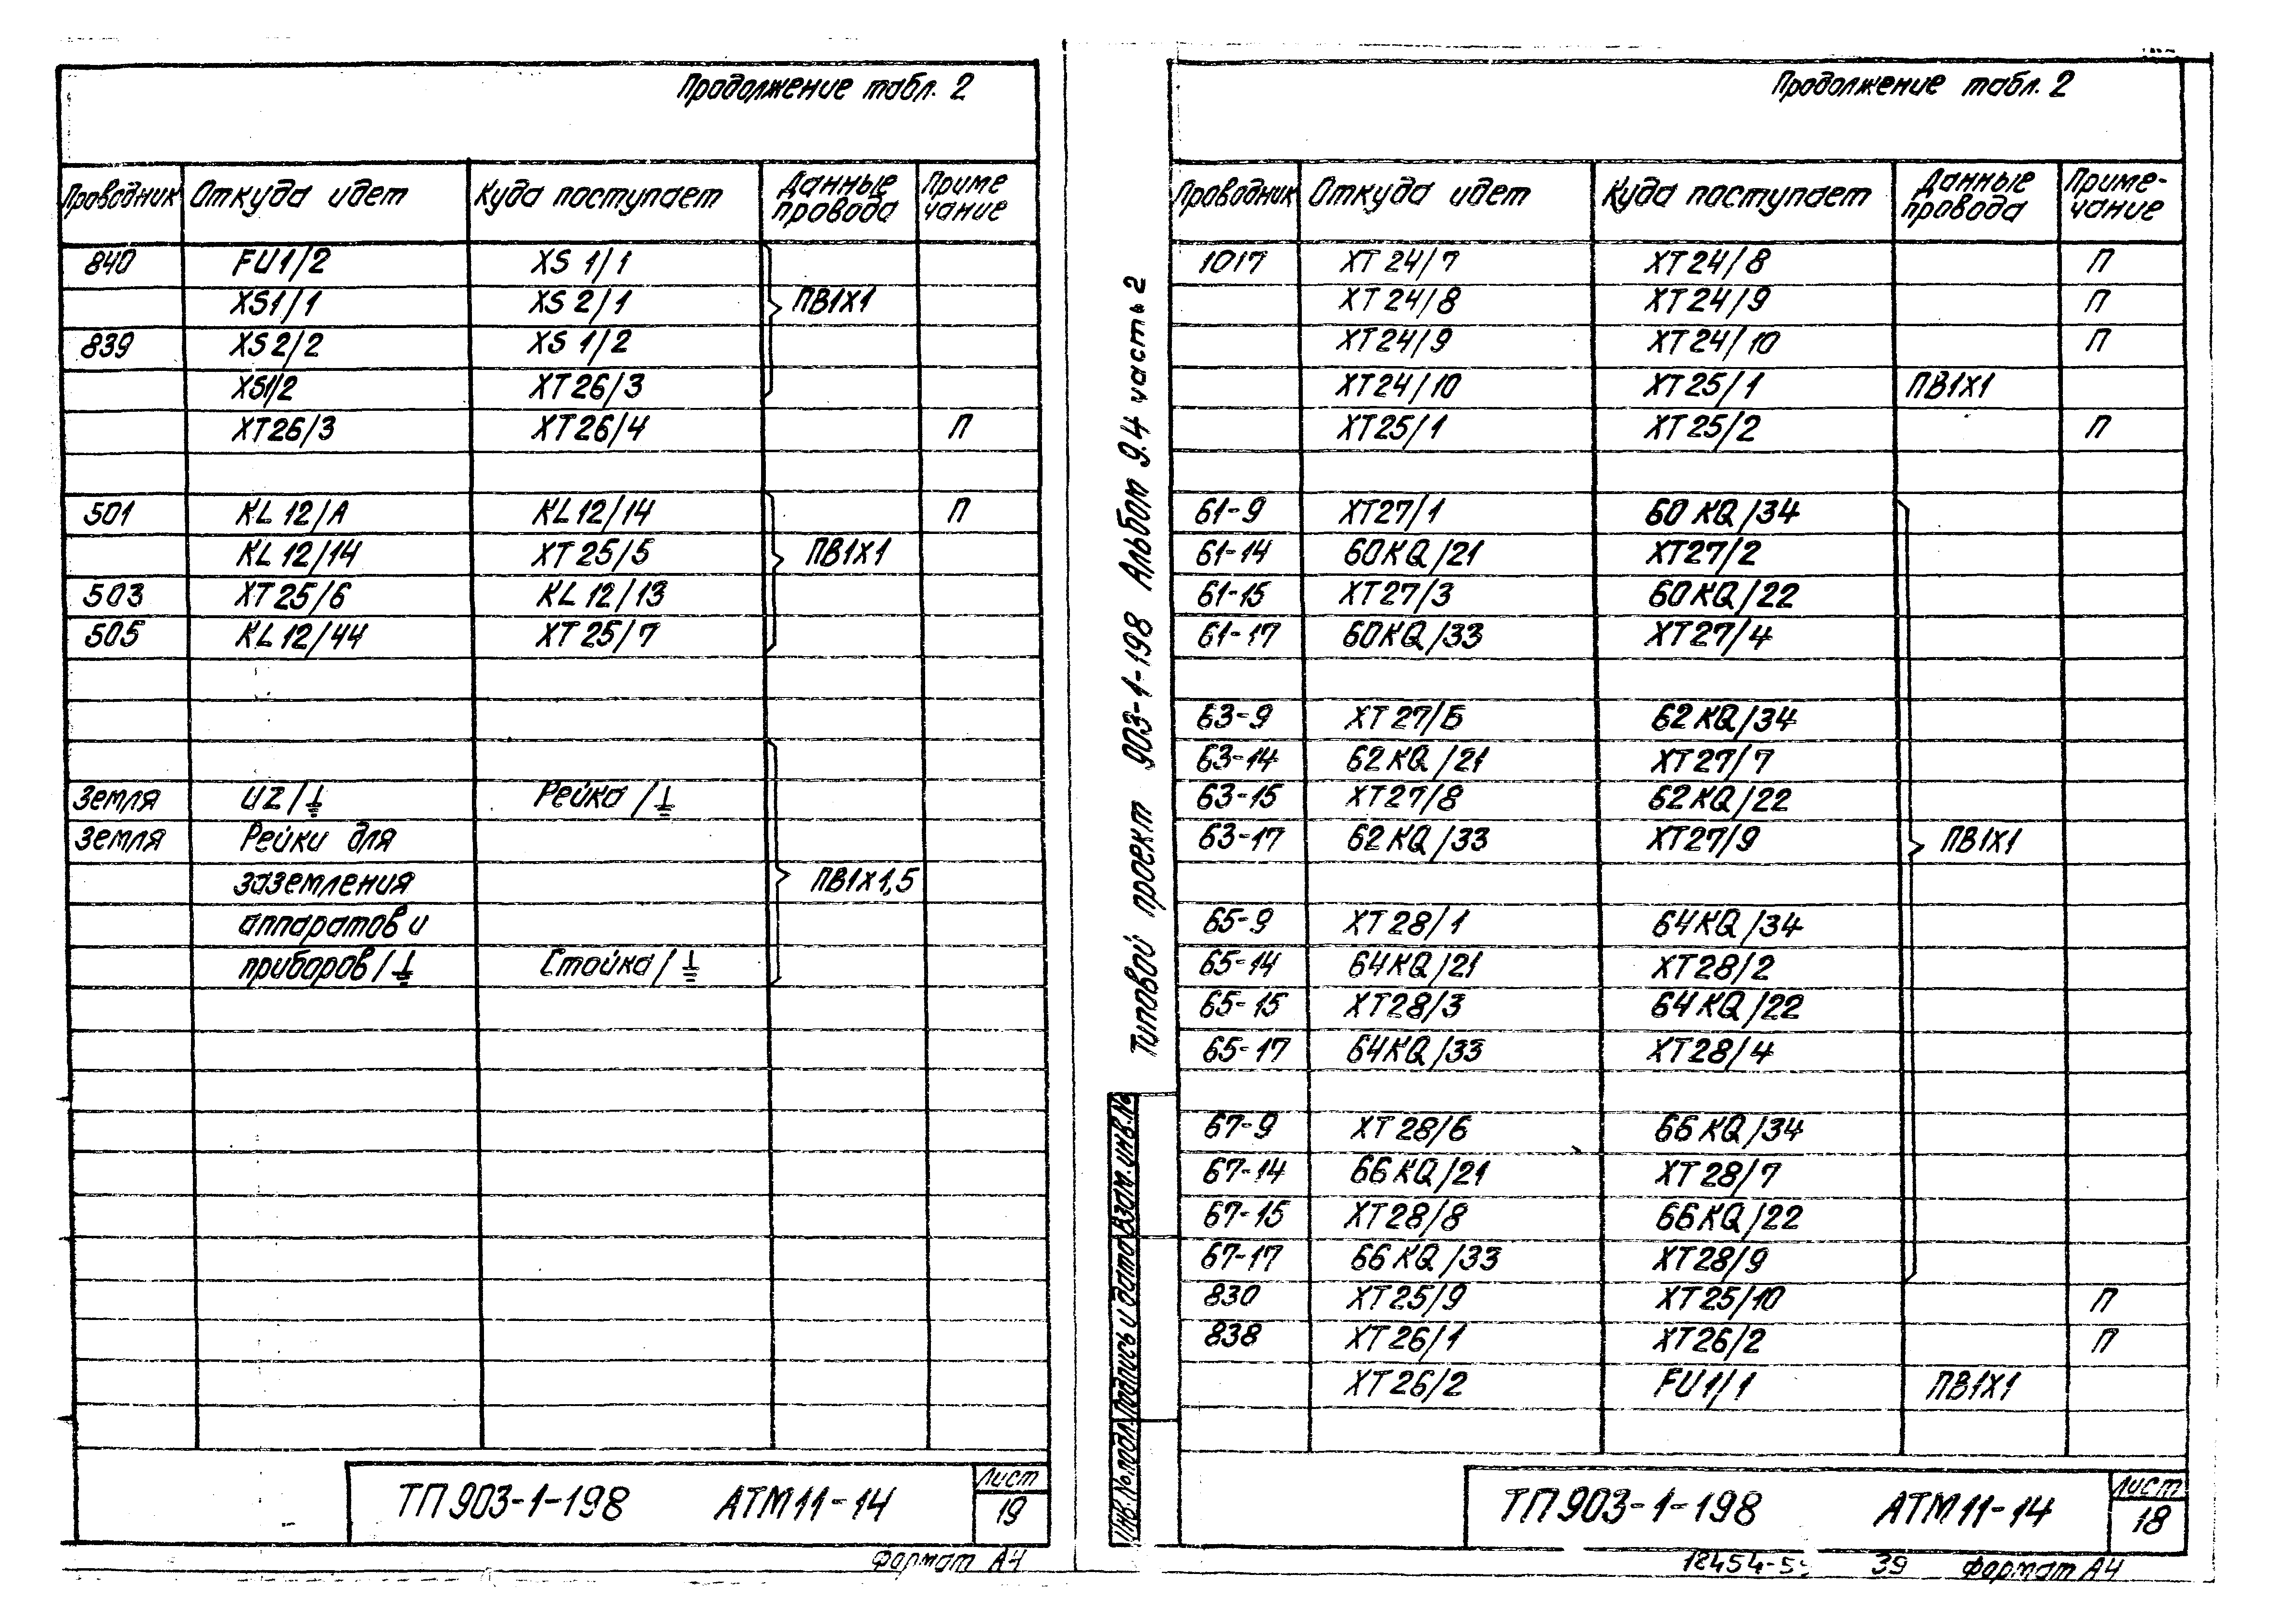 Продолжение табл. 2
Проводник Откуда идет Куда поступает Данные провода Приме чание
840 FU1/2 XS 1/1
XS1/1 XS 2/1 ПВ1Х1
839 XS2/2 XS 1/2
XS1/2 XT26/3
XT26/3 XT26/4 П
501 KL12/A KL12/14 П
KL12/14 XT25/5 ПВ1Х1
503 XT25/6 KL12/13
505 KL12/44 XT25/7
Земля UZ/⏚ Рейка/⏚
Земля Рейки для
заземления ПВ1Х1,5
аппаратов и
приборов/⏚ Стойка/⏚
ТП903-1-198 АТМ11-14 Лист 19
Формат А4
Типовой проект 903-1-198 Альбом 9.4 часть 2
Инв.№подл. Подпись и дата Взам.инв.№
Продолжение табл. 2
Проводник Откуда идет Куда поступает Данные провода Приме-чание
1017 XT24/7 XT24/8 П
XT24/8 XT24/9 П
XT24/9 XT24/10 П
XT24/10 XT25/1 ПВ1Х1
XT25/1 XT25/2 П
61-9 XT27/1 60KQ/34
61-14 60KQ/21 XT27/2
61-15 XT27/3 60KQ/22
61-17 60KQ/33 XT27/4
63-9 XT27/Б 62KQ/34
63-14 62KQ/21 XT27/7
63-15 XT27/8 62KQ/22
63-17 62KQ/33 XT27/9 ПВ1Х1
65-9 XT28/1 64KQ/34
65-14 64KQ/21 XT28/2
65-15 XT28/3 64KQ/22
65-17 64KQ/33 XT28/4
67-9 XT28/6 66KQ/34
67-14 66KQ/21 XT28/7
67-15 XT28/8 66KQ/22
67-17 66KQ/33 XT28/9
830 XT25/9 XT25/10 П
838 XT26/1 XT26/2 П
XT26/2 FU1/1 ПВ1Х1
ТП903-1-198 АТМ11-14 Лист 18
39 Формат А4